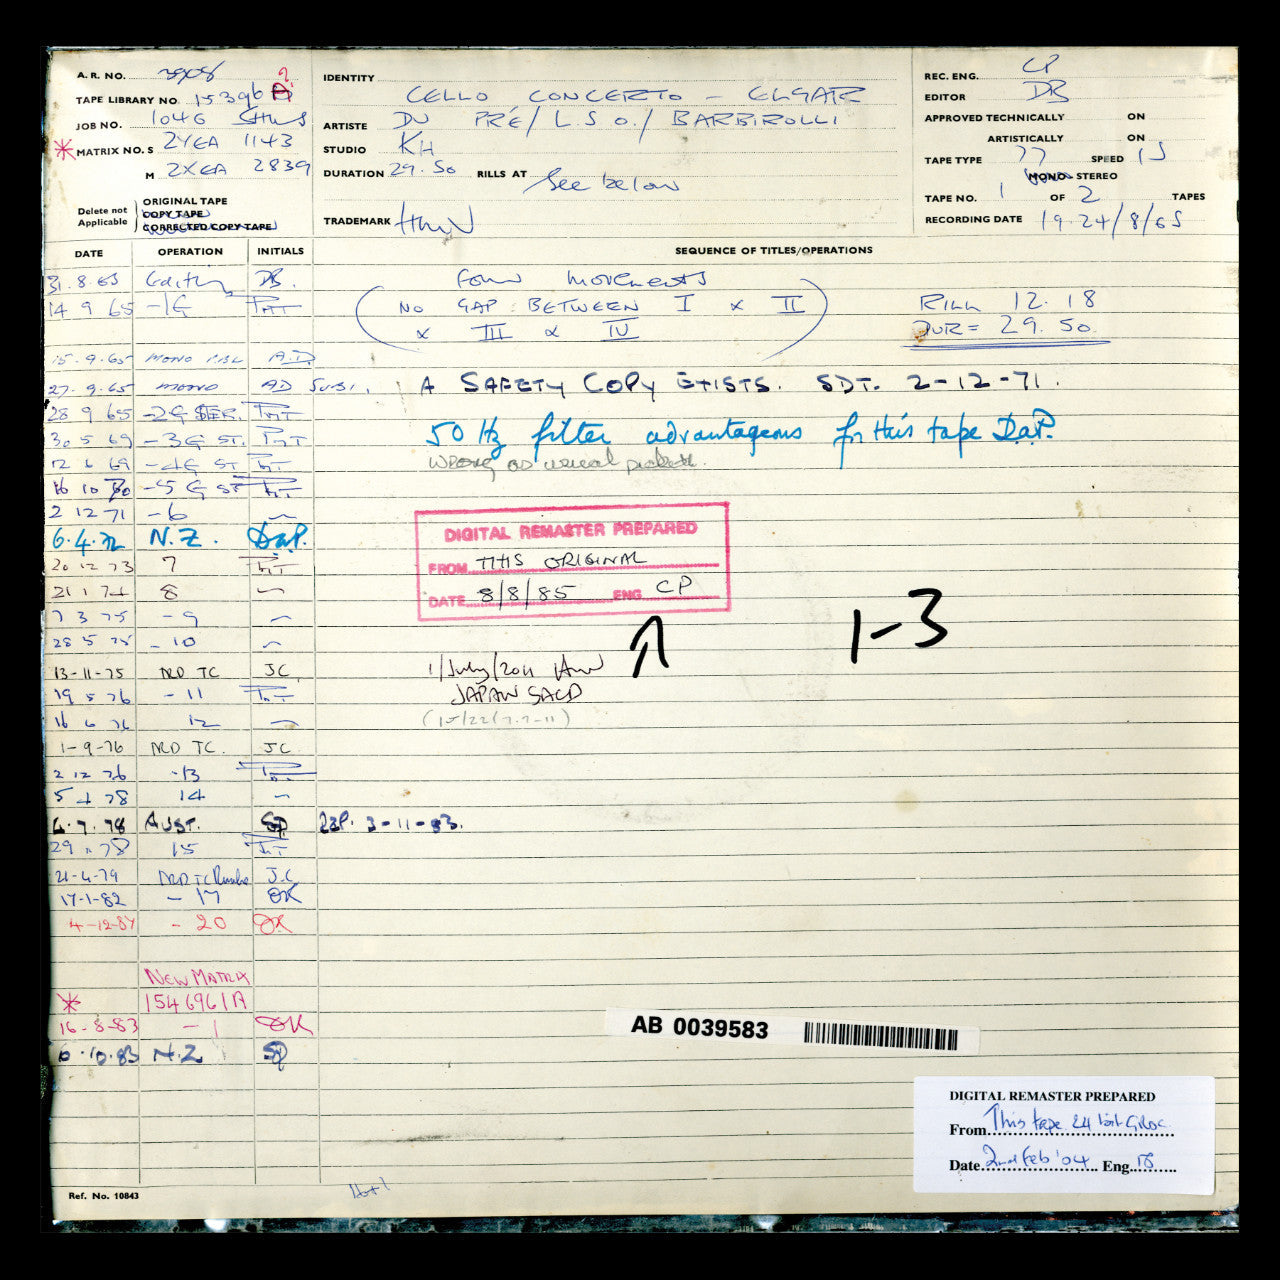 A.R. NO. 3908
TAPE LIBRARY NO 15396
JOB NO. 1046
MATRIX NO. S 2YEA 1143
M 2XEA 2839
Delete not Applicable
ORIGINAL TAPE
COPY TAPE
CORRECTED COPY TAPE
IDENTITY CELLO CONCERTO - ELGAR
ARTISTE DU PRÉ/L.S.O./BARBIROLLI
STUDIO KH
DURATION 29.50 RILLS AT See below
TRADEMARK HMV
REC. ENG. CP
EDITOR DB
APPROVED TECHNICALLY ON
ARTISTICALLY ON
TAPE TYPE 77 SPEED 15
MONO STEREO
TAPE NO. 1 OF 2 TAPES
RECORDING DATE 19-24/8/65
DATE OPERATION INITIALS SEQUENCE OF TITLES/OPERATIONS
31.8.65 Editing DB. Four Movements
14 9 65 -1G (NO GAP BETWEEN I x II RILL 12.18
x III x IV) DUR = 29.50.
15.9.65 MONO A.D.
27.9.65 MONO AD A SAFETY COPY EXISTS. SDT. 2-12-71.
28 9 65 -2G
30 5 69 -3G ST. 50 Hz filter advantageous for this tape D.a.P.
12 6 69 -4G ST WRONG as usual
16 10 70 -5G ST
2 12 71 -6
6.4.72 N.Z. D.a.P.
20 12 73 7
21 1 74 8
7 3 75 -9
28 5 75 -10
13-11-75 TC JC
19 5 76 -11
16 6 76 12
1-9-76 TC. JC
2 12 76 -13
5 4 78 14
6.7.78 AUST. SP 3-11-83.
29 78 15
21-4-79 J.C
17-1-82 -17 OK
4-12-84 -20 OK
NEW MATRIX
1546961A
16-8-83 -1 OK
6.10.83 N.Z SP
DIGITAL REMASTER PREPARED
FROM THIS ORIGINAL
DATE 8/8/85 ENG CP
1-3
1/July/2011
JAPAN SACD
AB 0039583
DIGITAL REMASTER PREPARED
From This tape 24 bit
Date 2nd Feb '04 Eng.
Ref. No. 10843